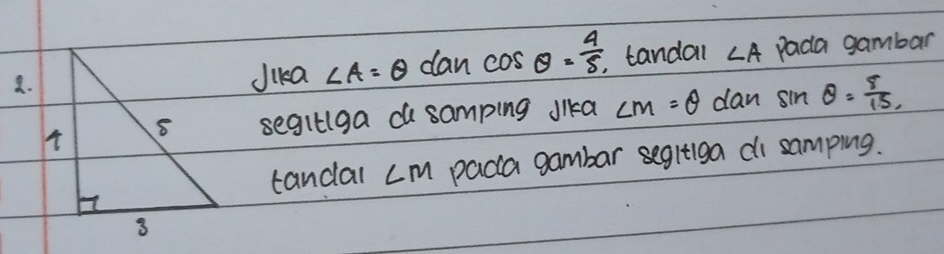 2.
Jika ∠A = θ dan cos θ = 4/5, tandai ∠A pada gambar
segitiga di samping Jika ∠M = θ dan sin θ = 8/15,
tandai ∠M pada gambar segitiga di samping.
4
5
3